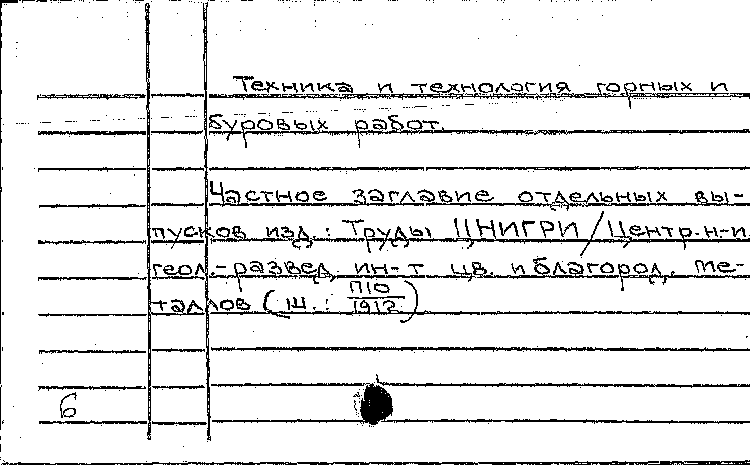 Техника и технология горных и
буровых работ.
Частное заглавие отдельных вы-
пусков изд.: Труды ЦНИГРИ/Центр.н-и.
геол.-развед. ин-т цв. и благород. ме-
таллов (ш.: П10/1912)
6